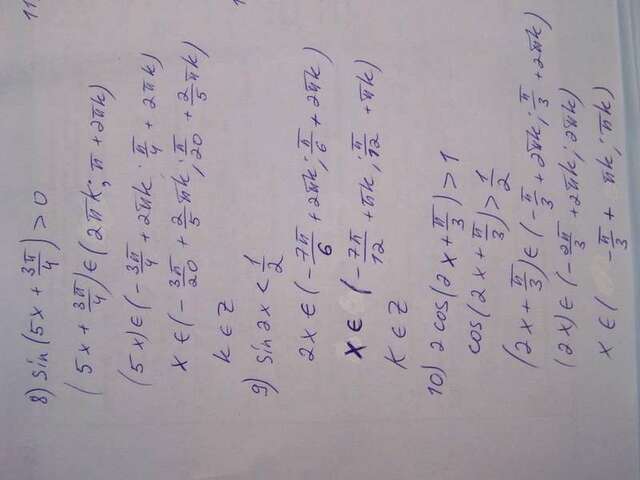 11
1
8) sin(5x + 3π/4) > 0
(5x + 3π/4) ∈ (2πk; π + 2πk)
(5x) ∈ (-3π/4 + 2πk; π/4 + 2πk)
x ∈ (-3π/20 + 2/5 πk; π/20 + 2/5 πk)
k ∈ Z
9) sin 2x < 1/2
2x ∈ (-7π/6 + 2πk; π/6 + 2πk)
x ∈ (-7π/12 + πk; π/12 + πk)
k ∈ Z
10) 2 cos(2x + π/3) > 1
cos(2x + π/3) > 1/2
(2x + π/3) ∈ (-π/3 + 2πk; π/3 + 2πk)
(2x) ∈ (-2π/3 + 2πk; 2πk)
x ∈ (-π/3 + πk; πk)